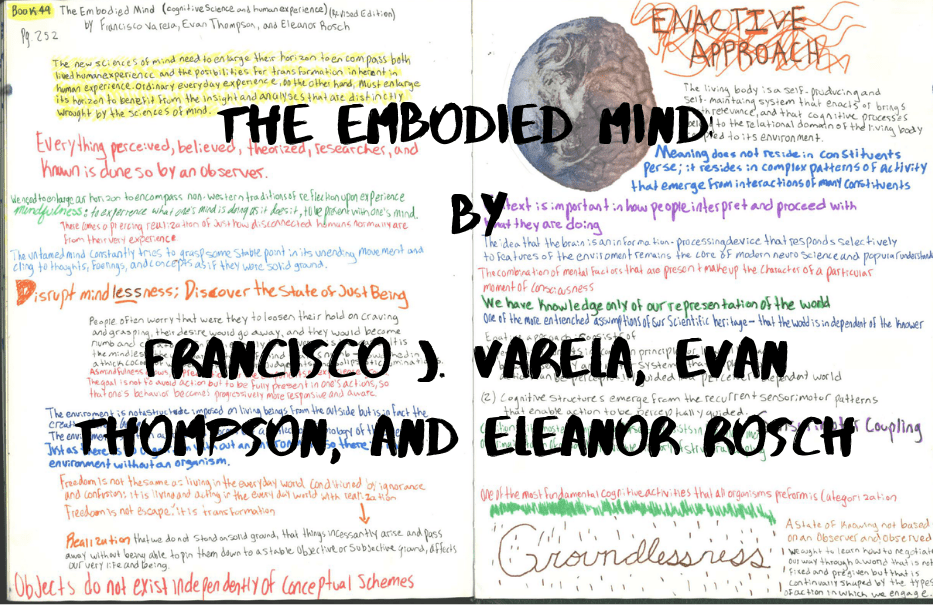 BOOK 49 The Embodied Mind (cognitive Science and human experience) (Revised Edition)
by Francisco Varela, Evan Thompson, and Eleanor Rosch
Pg. 252
The new sciences of mind need to enlarge their horizon to encompass both
lived human experience and the possibilities for transformation inherent in
human experience. Ordinary everyday experience, on the other hand, must enlarge
its horizon to benefit from the insight and analyses that are distinctly
wrought by the sciences of mind.
Everything perceived, believed, theorized, researcher, and
known is done so by an observer.
We need to enlarge our horizon to encompass non-western traditions of reflection upon experience
mindfulness: to experience what one's mind is doing as it does it, to be present with one's mind.
There comes a piercing realization of just how disconnected humans normally are
from their very experience
The untamed mind constantly tries to grasp some stable point in its unending movement and
cling to thoughts, feelings, and concepts as if they were solid ground.
Disrupt mindlessness; Discover the State of Just Being
People often worry that were they to loosen their hold on craving
and grasping, their desire would go away, and they would become
numb and
the mindless
The goal is not to avoid action but to be fully present in one's actions, so
that one's behavior becomes progressively more responsive and aware.
The enviroment is not a structure imposed on living beings from the outside but is in fact the
The
Just as there is
environment without an organism.
Freedom is not the same as living in the everyday world conditioned by ignorance
and confusion; it is living and acting in the every day world with realization
Freedom is not escape: it is transformation
Realization that we do not stand on solid ground, that things incessantly arise and pass
away without being able to pin them down to a stable objective or subjective ground, affects
our very life and being.
Objects do not exist independently of Conceptual Schemes
ENACTIVE
APPROACH
The living body is a self-producing and
self-maintaing system that enacts or brings
relevance, and that cognitive processes
to the relational domain of the living body
to its environment.
Meaning does not reside in constituents
perse; it resides in complex patterns of activity
that emerge from interactions of many constituents
Context is important in how people interpret and proceed with
what they are doing
The idea that the brain is an information-processing device that responds selectively
to features of the enviroment remains the core of modern neuro Science and popular understand
The combination of mental factors that are present makeup the character of a particular
moment of consciousness
We have knowledge only of our representation of the world
One of the more entrenched assumptions of our Scientific heritage - that the world is independent of the knower
dependent world
(2) Cognitive structures emerge from the recurrent sensorimotor patterns
that enable action to be perceptually guided.
Coupling
One of the most fundamental cognitive activities that all organisms preform is Categorization
Groundlessness
A State of Knowing not based
on an Observer and Observed
we ought to learn how to negotiate
our way through a world that is not
fixed and pregiven but that is
continually shaped by the types
of action in which we engage.
THE EMBODIED MIND:
BY
FRANCISCO J. VARELA, EVAN
THOMPSON, AND ELEANOR ROSCH